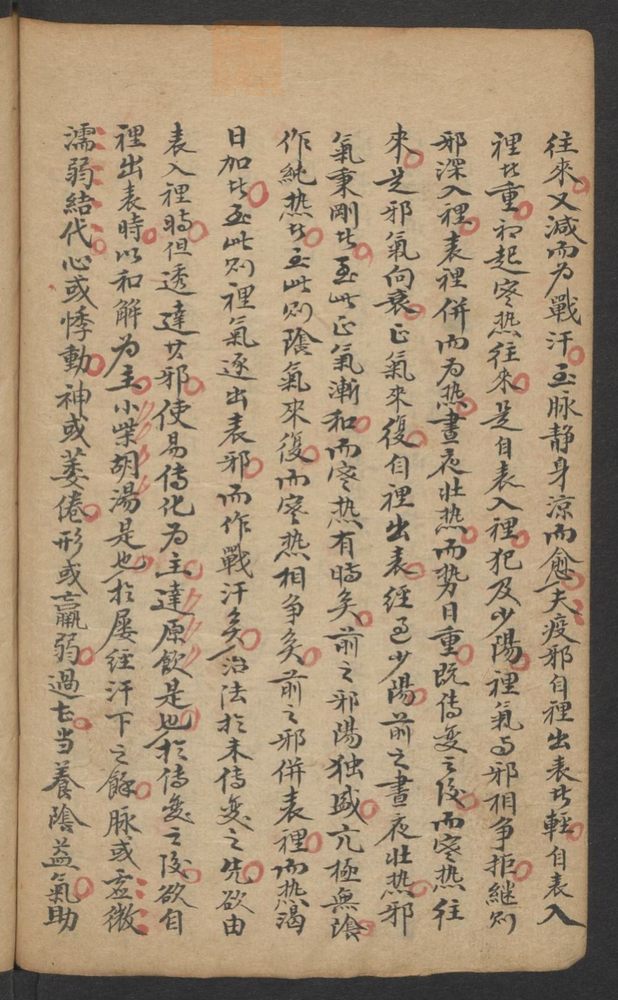 往來又減而为戰汗至脉静身涼而愈夫疫邪自裡出表者輕自表入
裡者重初起寒热往來是自表入裡犯及少陽裡氣与邪相争拒継则
邪深入裡表裡併而为热晝夜壮热而势日重既傳变之後而寒热往
來是邪氣向衰正氣來復自裡出表经过少陽前之晝夜壮热邪
氣秉剛者至此正氣漸和而寒热有時矣前之邪陽独盛亢極無陰
作純热者至此则陰氣來復而寒热相争矣前之邪併表裡而热渴
日加者至此则裡氣逐出表邪而作戰汗矣治法於未傳变之先欲由
表入裡時但透達其邪使易傳化为主達原飲是也於傳变之後欲自
裡出表時以和解为主小柴胡湯是也於屡经汗下之餘脉或虚微
濡弱結代心或悸動神或萎倦形或羸弱過甚当養陰益氣助